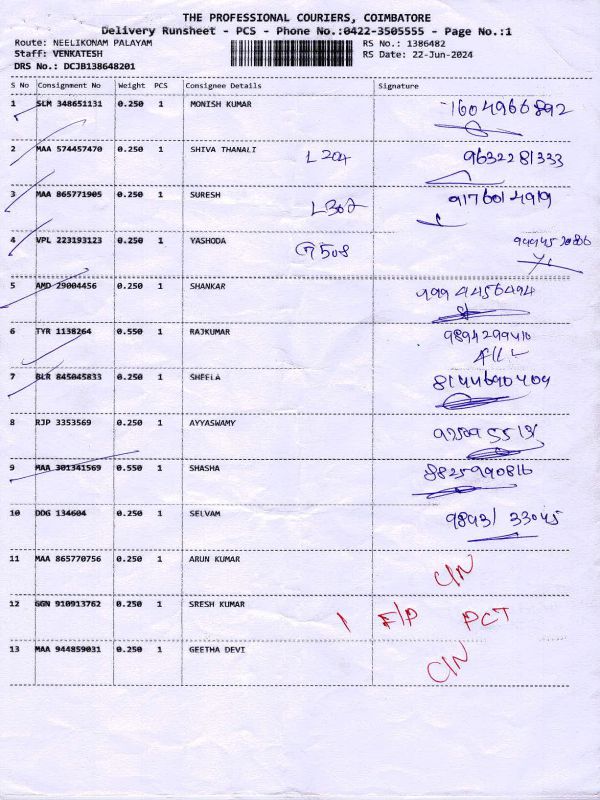 THE PROFESSIONAL COURIERS, COIMBATORE
Delivery Runsheet - PCS - Phone No.:0422-3505555 - Page No.:1
Route: NEELIKONAM PALAYAM RS No.: 1386482
Staff: VENKATESH RS Date: 22-Jun-2024
DRS No.: DCJB138648201
S No Consignment No Weight PCS Consignee Details Signature
1 SLM 348651131 0.250 1 MONISH KUMAR 1604966892
2 MAA 574457470 0.250 1 SHIVA THANALI L 204 9632281333
3 MAA 865771905 0.250 1 SURESH L302 9176014919
4 VPL 223193123 0.250 1 YASHODA G508
5 AMD 29004456 0.250 1 SHANKAR 9994456494
6 TYR 1138264 0.550 1 RAJKUMAR 9894299410
7 BLR 845045833 0.250 1 SHEELA 8144690409
8 RJP 3353569 0.250 1 AYYASWAMY
9 MAA 301341569 0.550 1 SHASHA 8825990816
10 DDG 134604 0.250 1 SELVAM 98931 33045
11 MAA 865770756 0.250 1 ARUN KUMAR C/N
12 GGN 910913762 0.250 1 SRESH KUMAR F/P PCT
13 MAA 944859031 0.250 1 GEETHA DEVI C/N